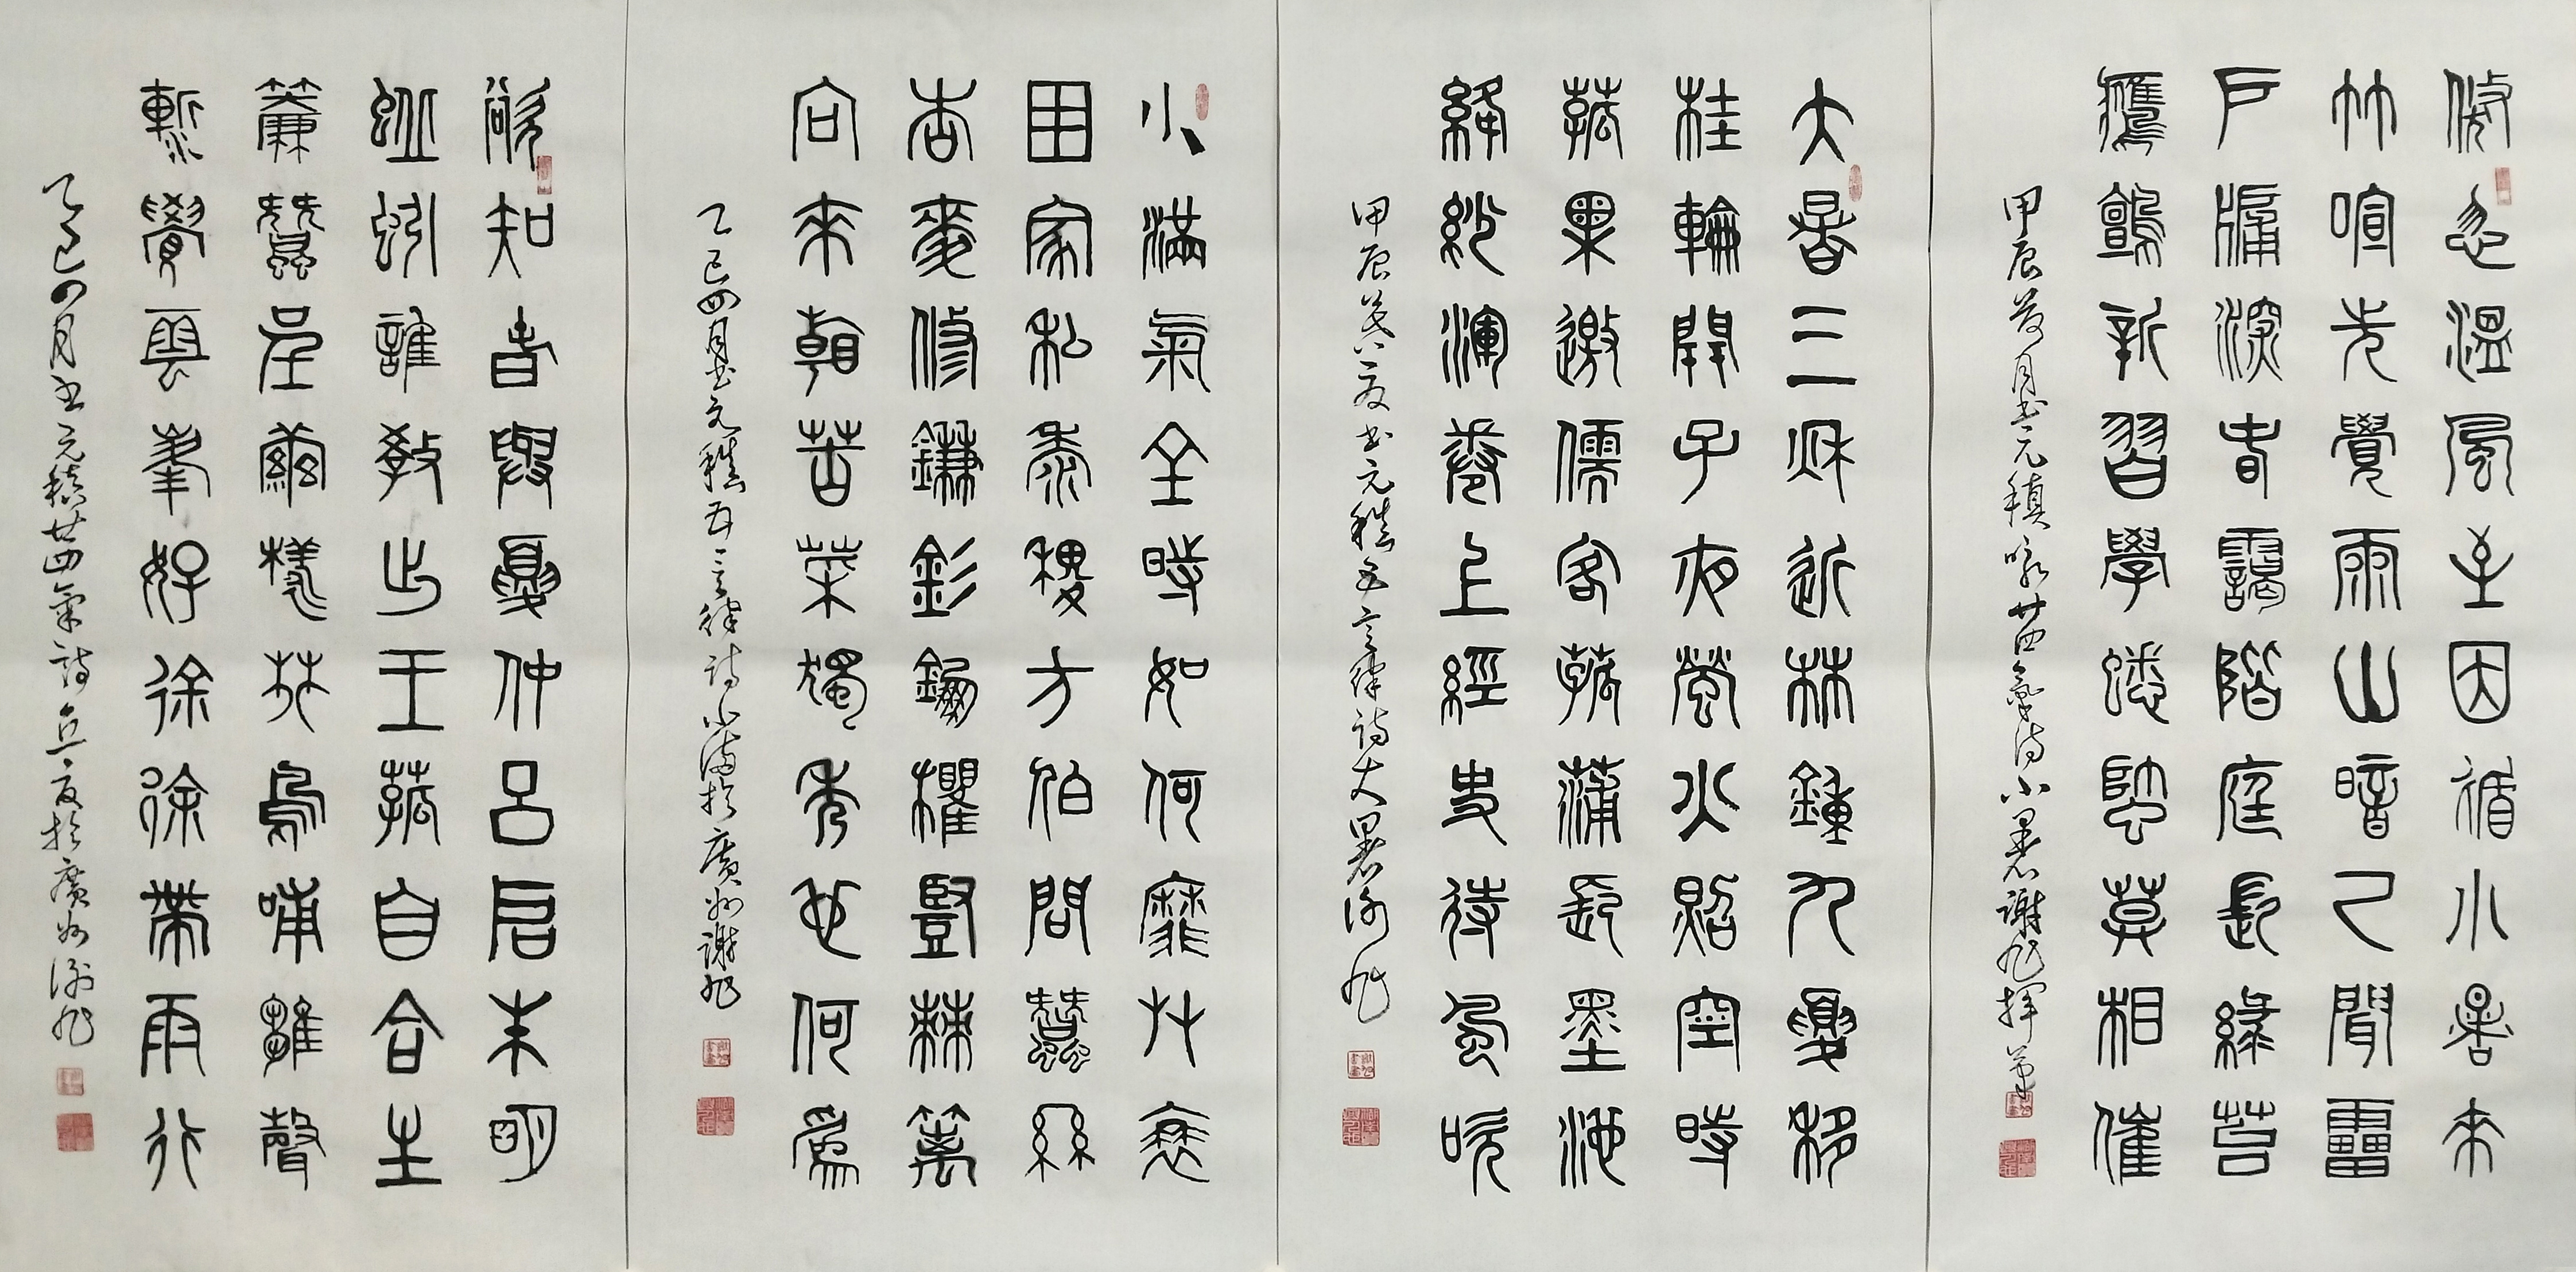 倏忽溫風至因循小暑來
竹喧先覺雨山暗已聞雷
戶牖深青靄階庭長綠苔
鷹鸇新習學蟋蟀莫相催
甲辰月書元稹咏廿四氣詩小暑謝旭揮筆
大暑三秋近林鍾九夏移
桂輪開子夜螢火照空時
菰果邀儒客菰蒲長墨池
絳紗渾卷上經史待風吹
甲辰夏書元稹五言律詩大暑謝旭
小滿氣全時如何靡艸衰
田家私黍稷方伯問蠶絲
杏麥修鐮釤鋤欋豎棘籬
向來看苦菜獨秀也何爲
乙巳四月書元稹五言律詩小滿於廣州謝旭
欲知春與夏仲呂啟朱明
蚯蚓誰教出王菰自合生
簾蠶呈繭樣林鳥哺雛聲
漸覺雲峯好徐徐帶雨行
乙巳四月書元稹廿四氣詩立夏於廣州謝旭